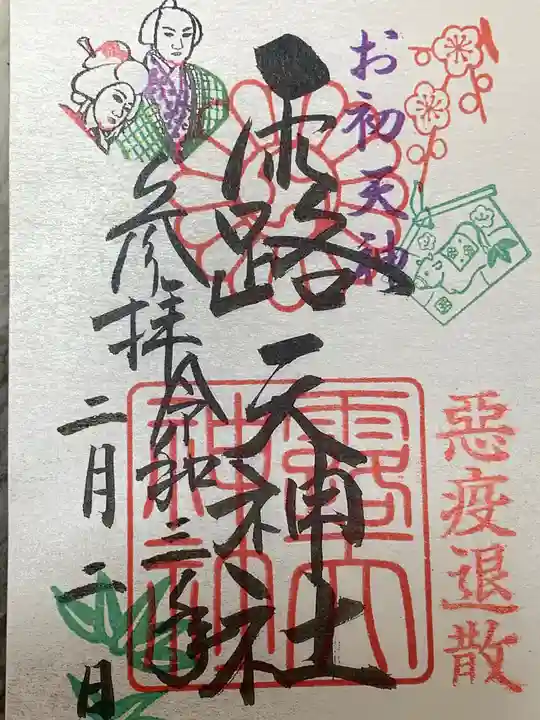 お初天神
露天神社
参拝
令和三年
二月二日
惡疫退散
露天神社